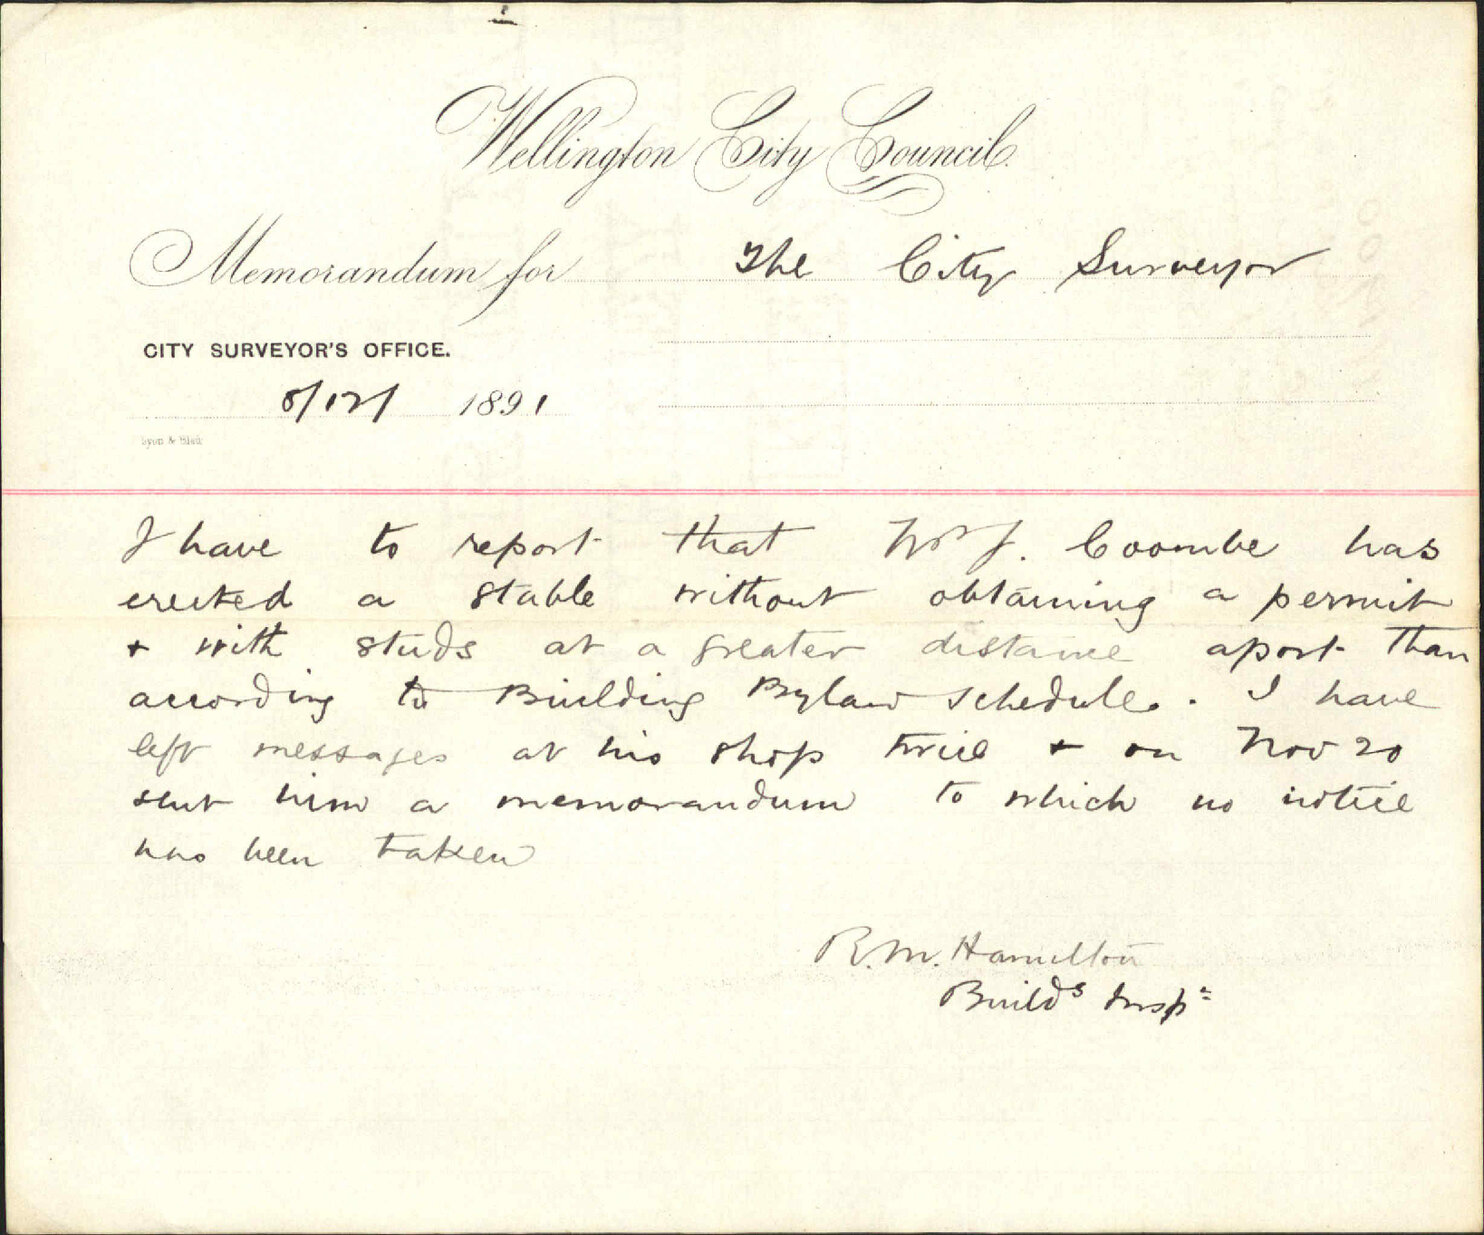 Wellington City Council.
Memorandum for The City Surveyor
CITY SURVEYOR'S OFFICE.
8/12/ 1891
Lyon & Blair
I have to report that J. Coombe has
erected a stable without obtaining a permit
+ with studs at a greater distance apart than
according to Building Bylaw schedule. I have
left messages at his shop twice + on Nov 20
sent him a memorandum to which no notice
has been taken
R. M. Hamilton
Buildg Inspr